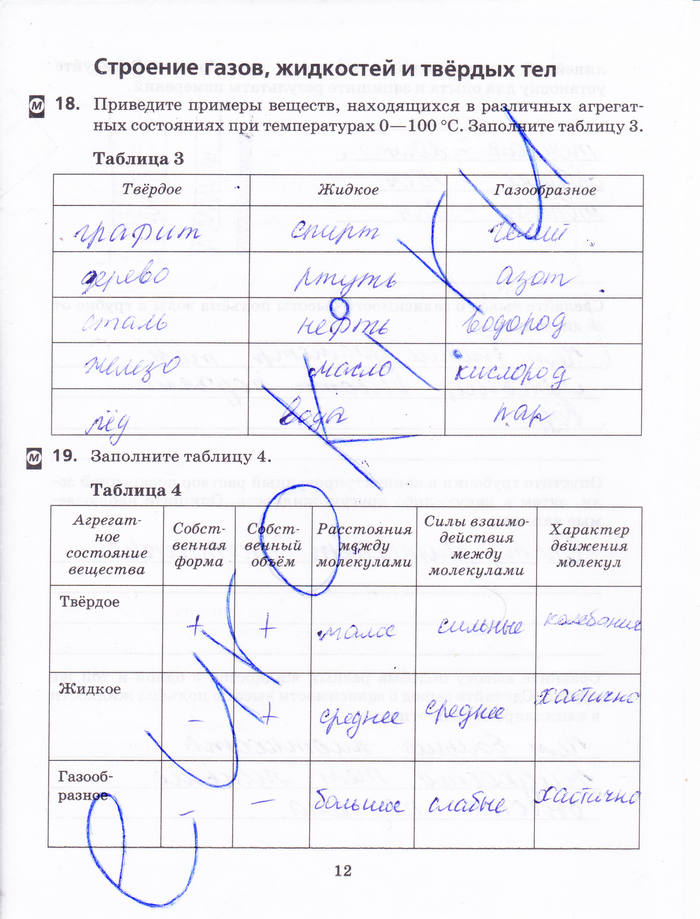 Строение газов, жидкостей и твёрдых тел
М 18. Приведите примеры веществ, находящихся в различных агрегат-
ных состояниях при температурах 0—100 °С. Заполните таблицу 3.
Таблица 3
Твёрдое Жидкое Газообразное
графит спирт гелий
дерево ртуть азот
сталь нефть водород
железо масло кислород
лёд вода пар
М 19. Заполните таблицу 4.
Таблица 4
Агрегат-
ное
состояние
вещества
Собст-
венная
форма
Собст-
венный
объём
Расстояния
между
молекулами
Силы взаимо-
действия
между
молекулами
Характер
движения
молекул
Твёрдое
+ + малое сильные колебания
Жидкое
– + среднее среднее хаотично
Газооб-
разное
– – большое слабые хаотично
12